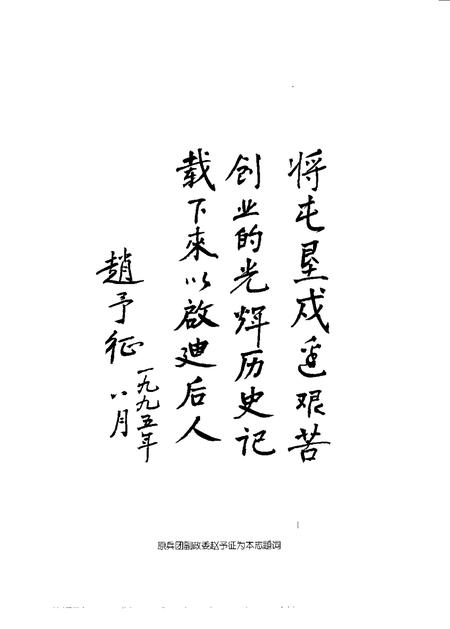 将屯垦戍边艰苦
创业的光辉历史记
载下来以啟迪后人
趙予征
一九九五年
八月
原兵团副政委赵予征为本志题词